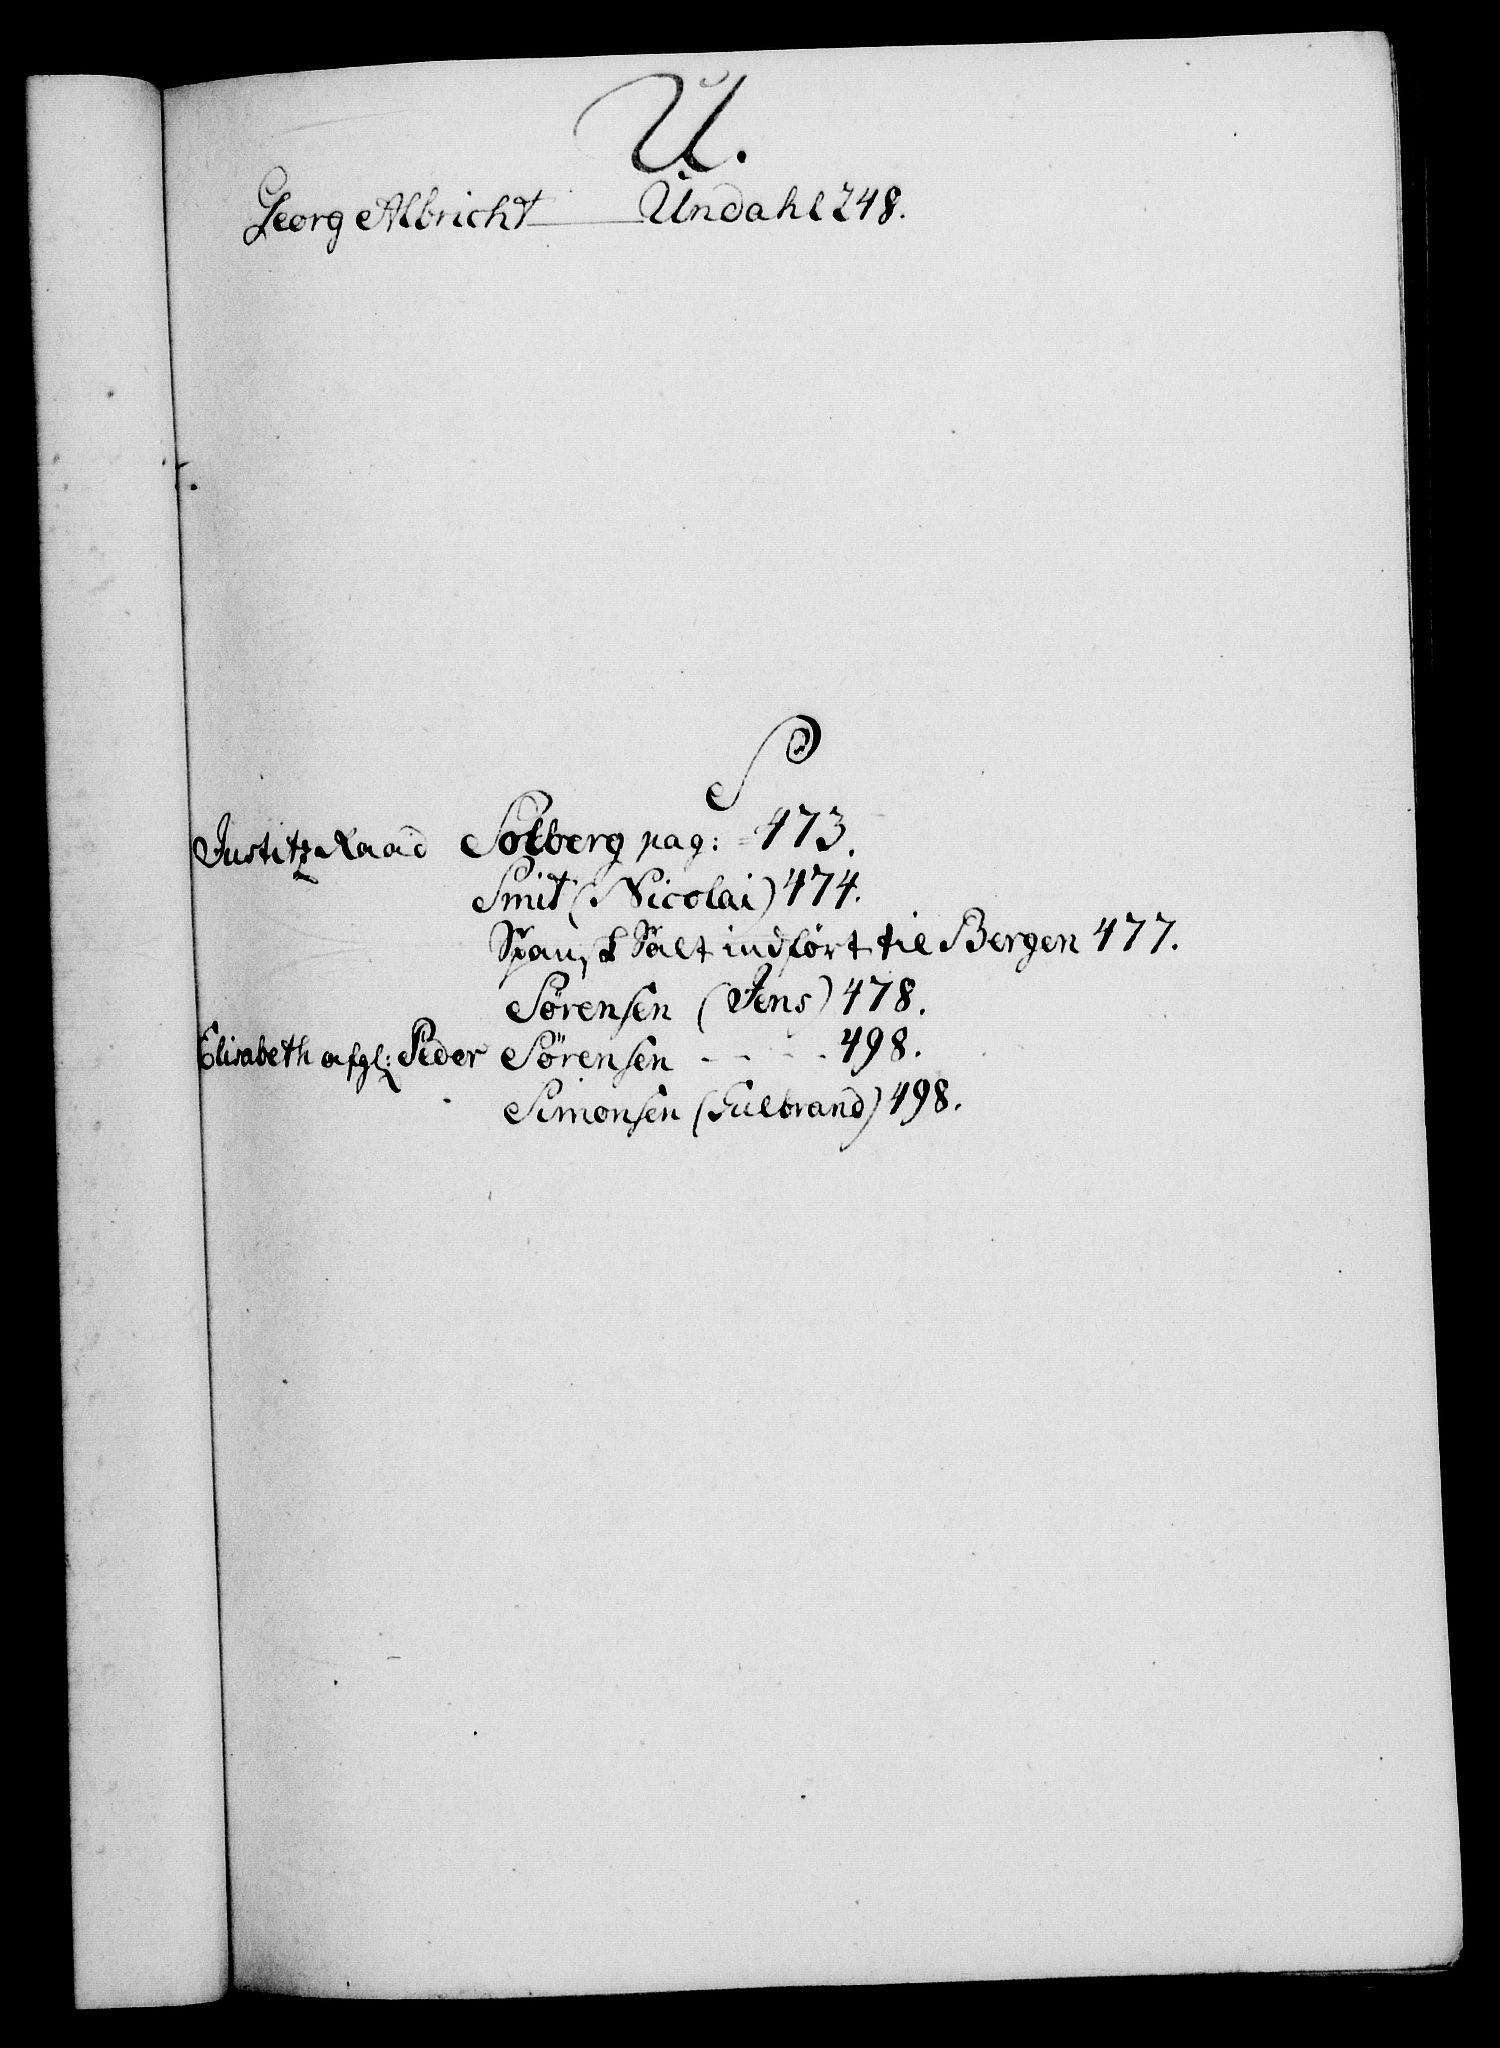 U.
Georg Albricht Undahl 248.
S
Justitz Raad Solberg pag: 473.
Smit (Nicolai) 474.
Spansk Salt indført til Bergen 477.
Sørensen (Jens) 478.
Elisabeth afgl: Peder Sørensen - - - - 498.
Simonsen (Gulbrand) 498.